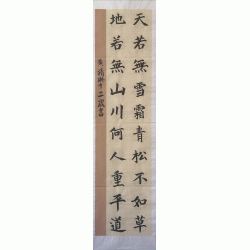 天若無雪霜青松不如草
地若無山川何人重平道